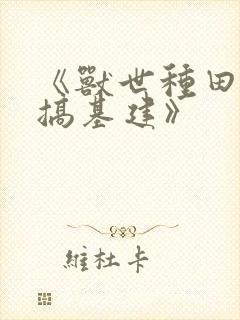 《獸世種田
搞基建》
維杜卡